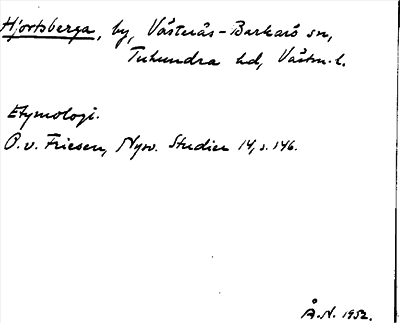 Hjortsberga, by, Västerås-Barkarö sn,
Tuhundra hd, Västm. l.
Etymologi.
O. v. Friesen, Nysv. Studier 14, s. 146.
Å. N. 1952.